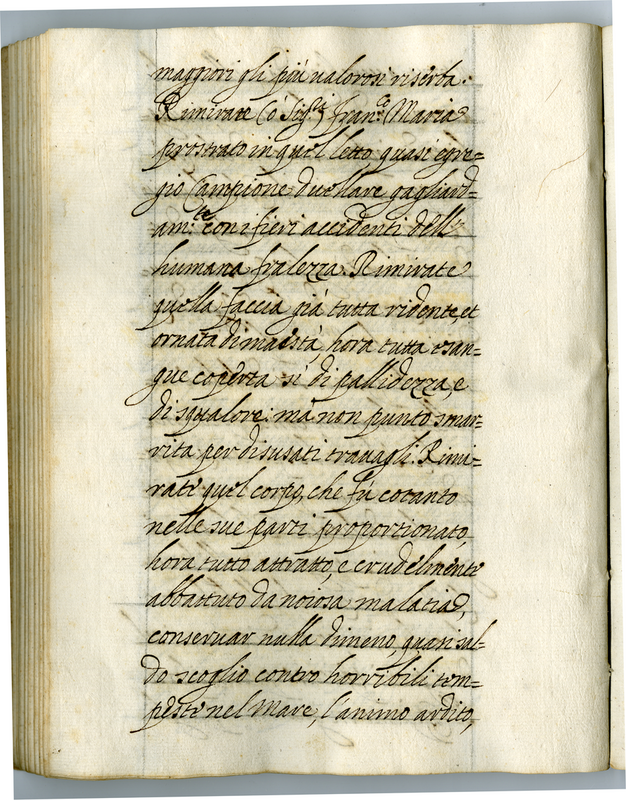 maggiori gli più ualorosi riserba.
Rimirate (ò Sig.ri) Fran.co Maria
prostrato in quel letto, quasi egre=
gio Campione duellare gagliard=
am.te con i fieri accidenti dell'
humana fralezza. Rimirate
quella faccia già tutta ridente, et
ornata di maestà, hora tutta esan=
gue coperta sì di pallidezza, e
di squalore: mà non punto smar=
rita per disusati trauagli. Rimi=
rate quel corpo, che fù cotanto
nelle sue parti proportionato,
hora tutto attratto, e crudelmente
abbattuto da noiosa malatia,
conseruar nulla dimeno, quasi sal=
do scoglio contro horribili tem=
peste nel Mare, l'animo ardito,